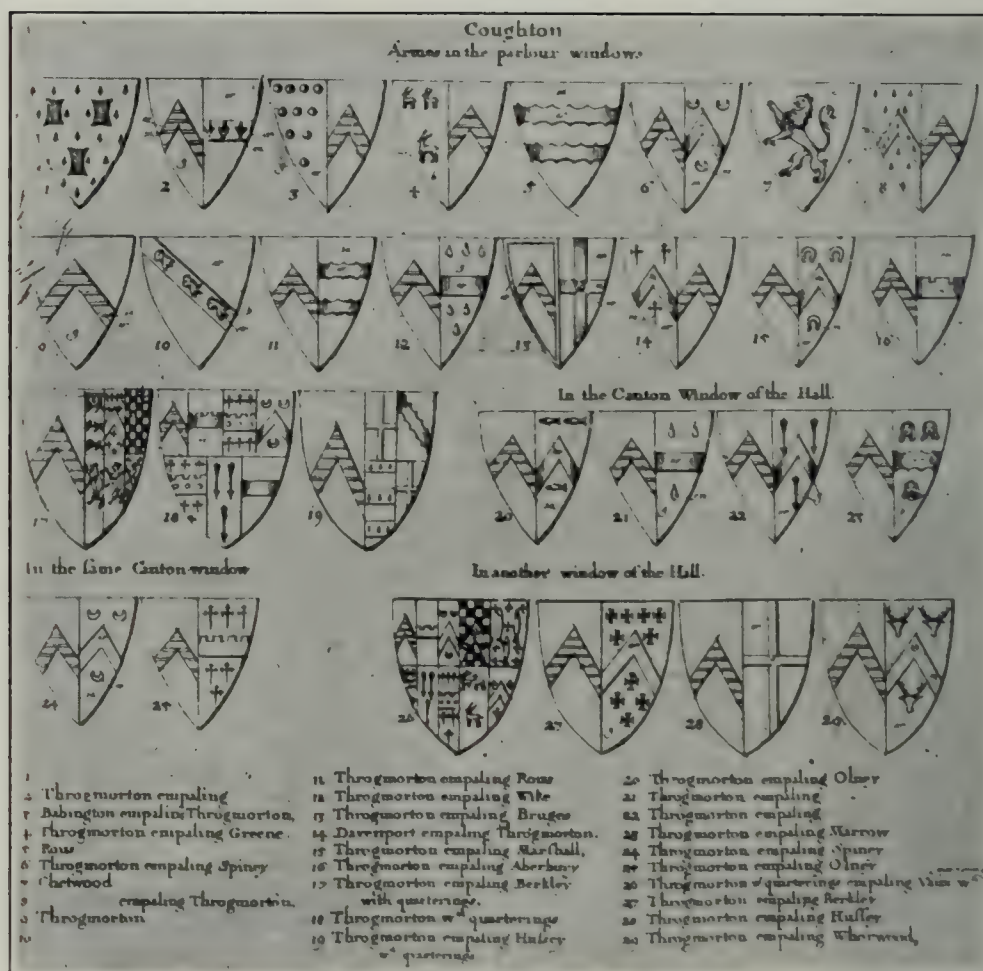 Coughton
Armes in the parlour windows
1 2 3 4 5 6 7 8
9 10 11 12 13 14 15 16
In the Canton Window of the Hall.
17 18 19 20 21 22 23
In the same Canton window
In another window of the Hall.
24 25 26 27 28 29
1
2 Throgmorton empaling
3 Babington empaling Throgmorton.
4 Throgmorton empaling Greene.
5 Rous
6 Throgmorton empaling Spiney
7 Chetwood
8 empaling Throgmorton.
9 Throgmorton
10
11 Throgmorton empaling Rous
12 Throgmorton empaling Wike
13 Throgmorton empaling Bruges
14 Davenport empaling Throgmorton.
15 Throgmorton empaling Marshall,
16 Throgmorton empaling Aberbury
17 Throgmorton empaling Berkley
with quarterings.
18 Throgmorton wth quarterings
19 Throgmorton empaling
wth quarterings
20 Throgmorton empaling Olney
21 Throgmorton empaling
22 Throgmorton empaling
23 Throgmorton empaling Marrow
24 Throgmorton empaling Spiney
25 Throgmorton empaling Olney
26 Throgmorton wth quarterings empaling
27 Throgmorton empaling Berkley
28 Throgmorton empaling Hussey
29 Throgmorton empaling Whorwood,